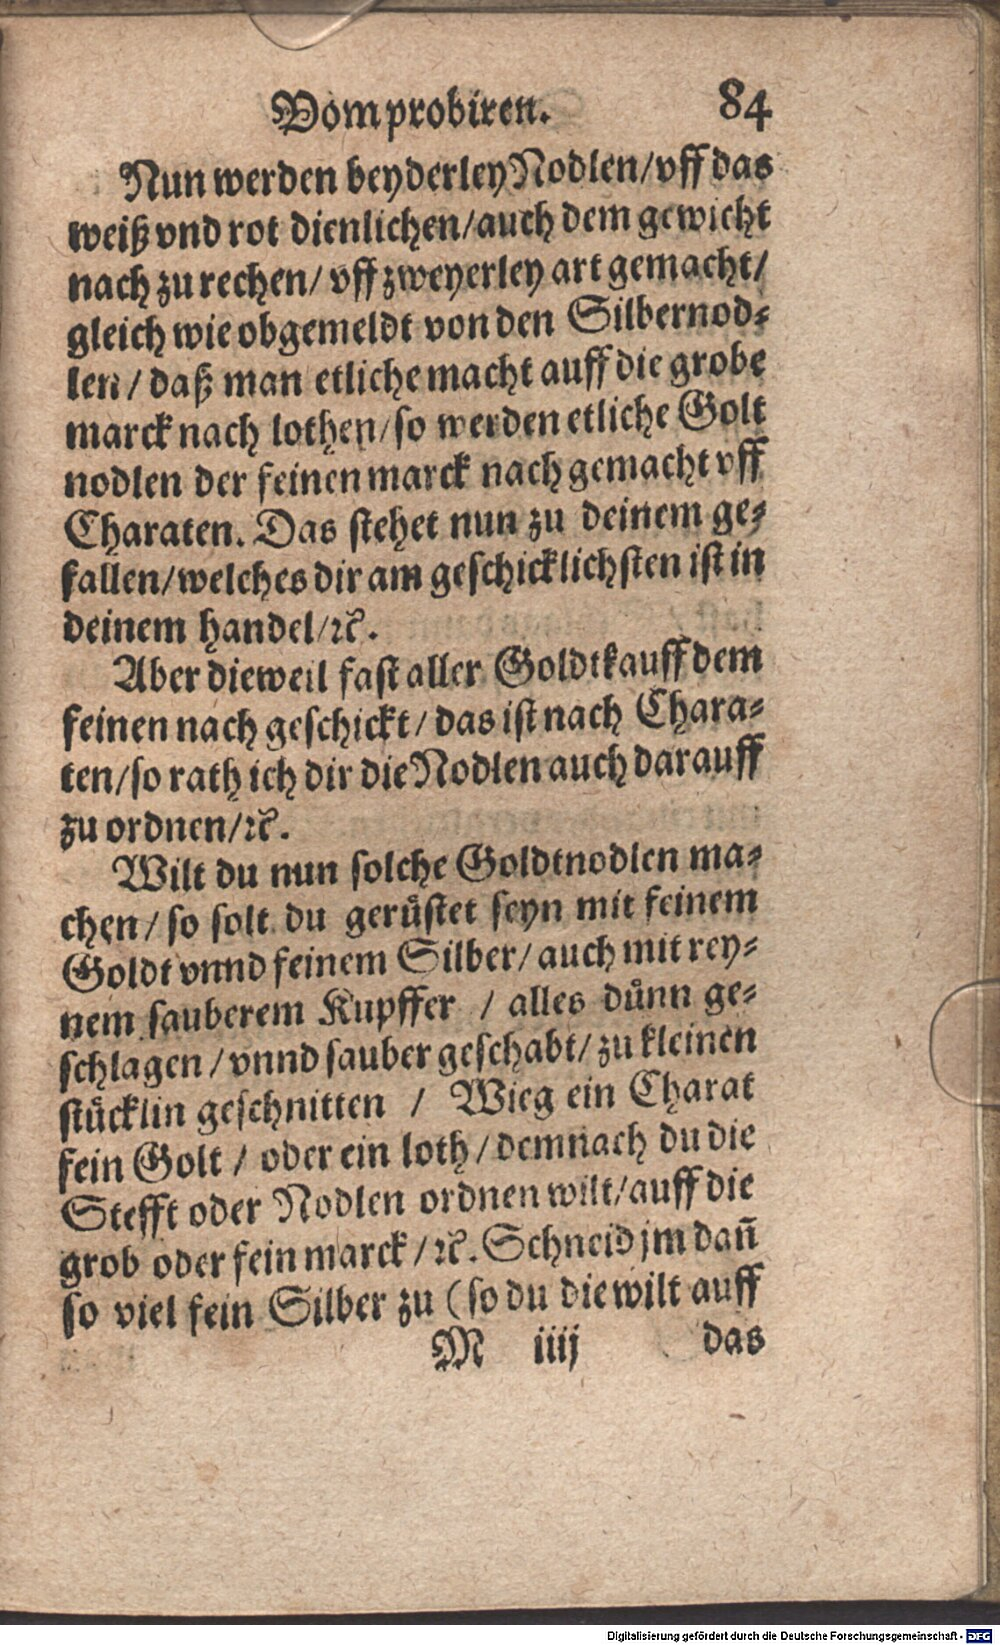 Vom probiren. 84
Nun werden beyderley Nodlen/vff das
weiß vnd rot dienlichen/auch dem gewicht
nach zu rechen/ vff zweyerley art gemacht/
gleich wie obgemeldt von den Silbernod⸗
len/ daß man etliche macht auff die grobe
marck nach lothen/so werden etliche Golt
nodlen der feinen marck nach gemacht vff
Charaten. Das stehet nun zu deinem ge⸗
fallen/welches dir am geschicklichsten ist in
deinem handel/ꝛc̃.
Aber dieweil fast aller Goldtkauff dem
feinen nach geschickt/ das ist nach Chara⸗
ten/so rath ich dir die Nodlen auch darauff
zu ordnen/ꝛc̃.
Wilt du nun solche Goldtnodlen ma⸗
chen/ so solt du gerůstet seyn mit feinem
Goldt vnnd feinem Silber/ auch mit rey⸗
nem sauberem Kupffer / alles důnn ge⸗
schlagen/ vnnd sauber geschabt/ zu kleinen
stůcklin geschnitten / Wieg ein Charat
fein Golt / oder ein loth/ demnach du die
Stefft oder Nodlen ordnen wilt/auff die
grob oder fein marck/ꝛc̃. Schneid jm dañ
so viel fein Silber zu (so du die wilt auff
M iiij das
Digitalisierung gefördert durch die Deutsche Forschungsgemeinschaft - DFG